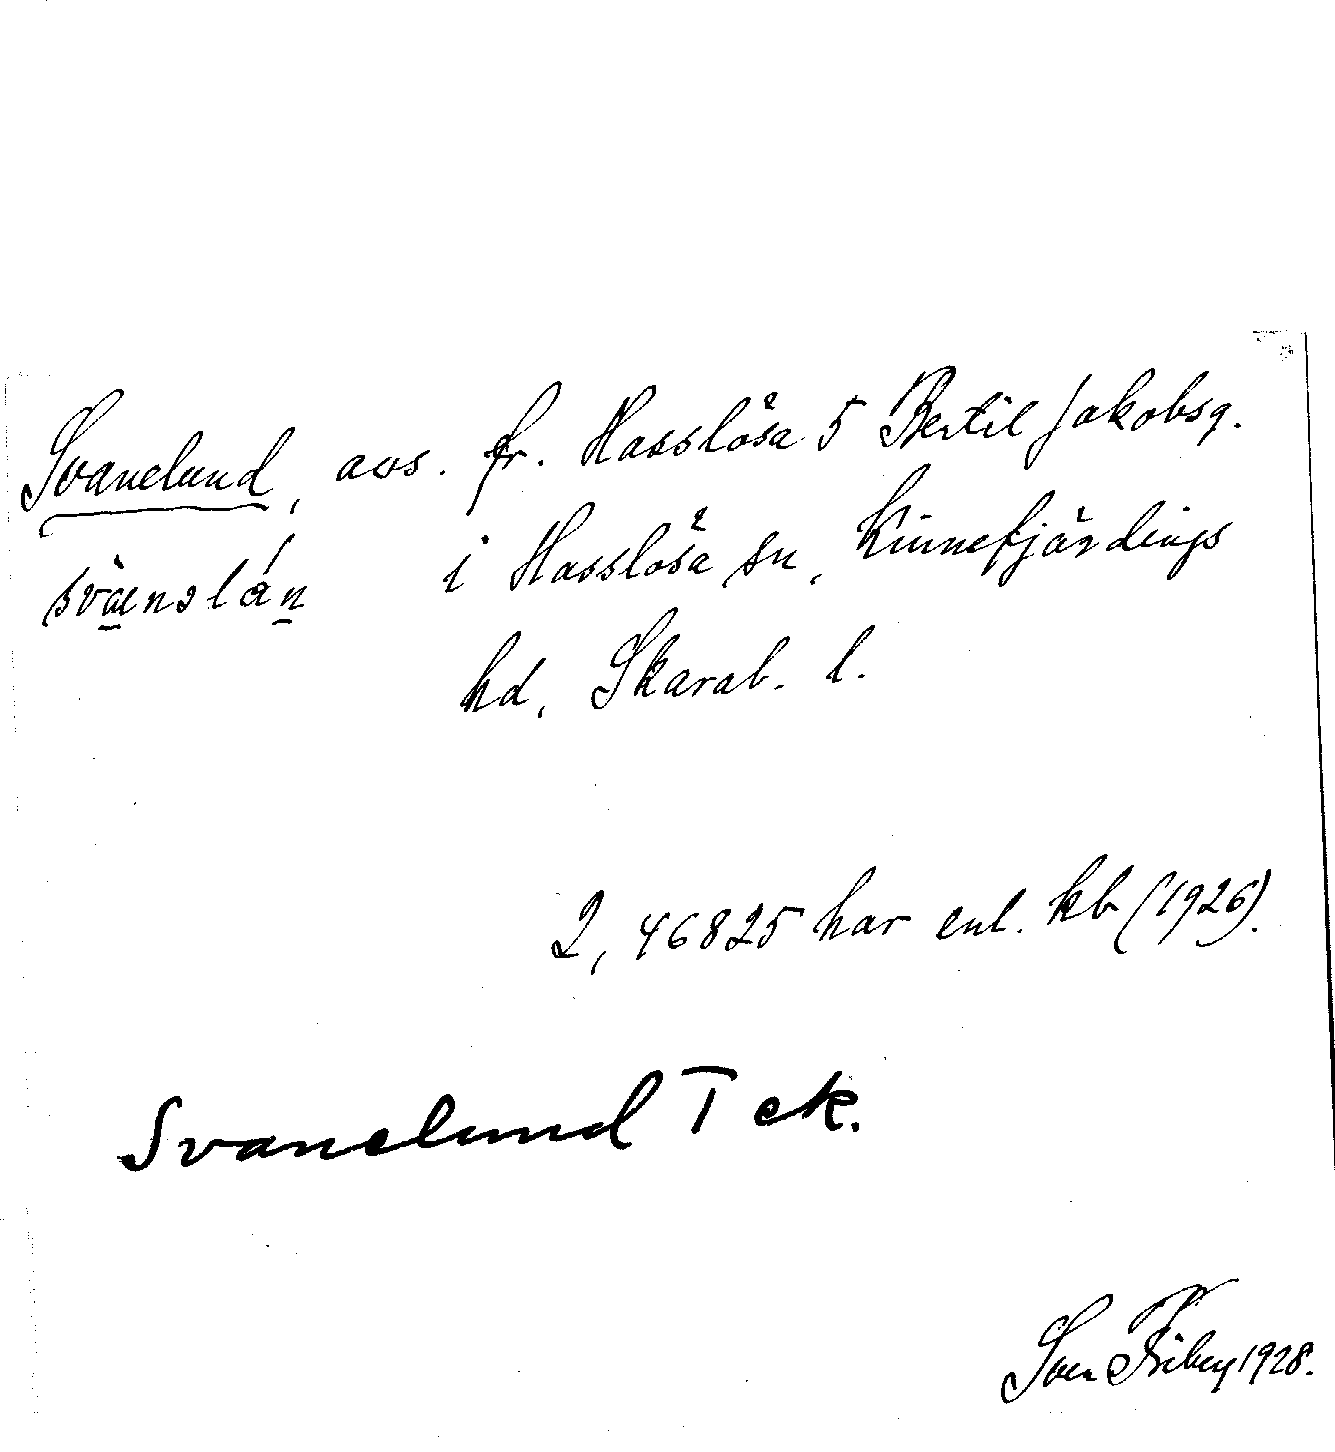 Svanelund, avs. fr. Hasslösa 5 Bertil Jakobsg.
i Hasslösa sn, Kinnefjärdings
hd, Skarab. l.
2,46825 har enl. kb (1926).
Svanelund T ek.
Sven Friberg 1928.